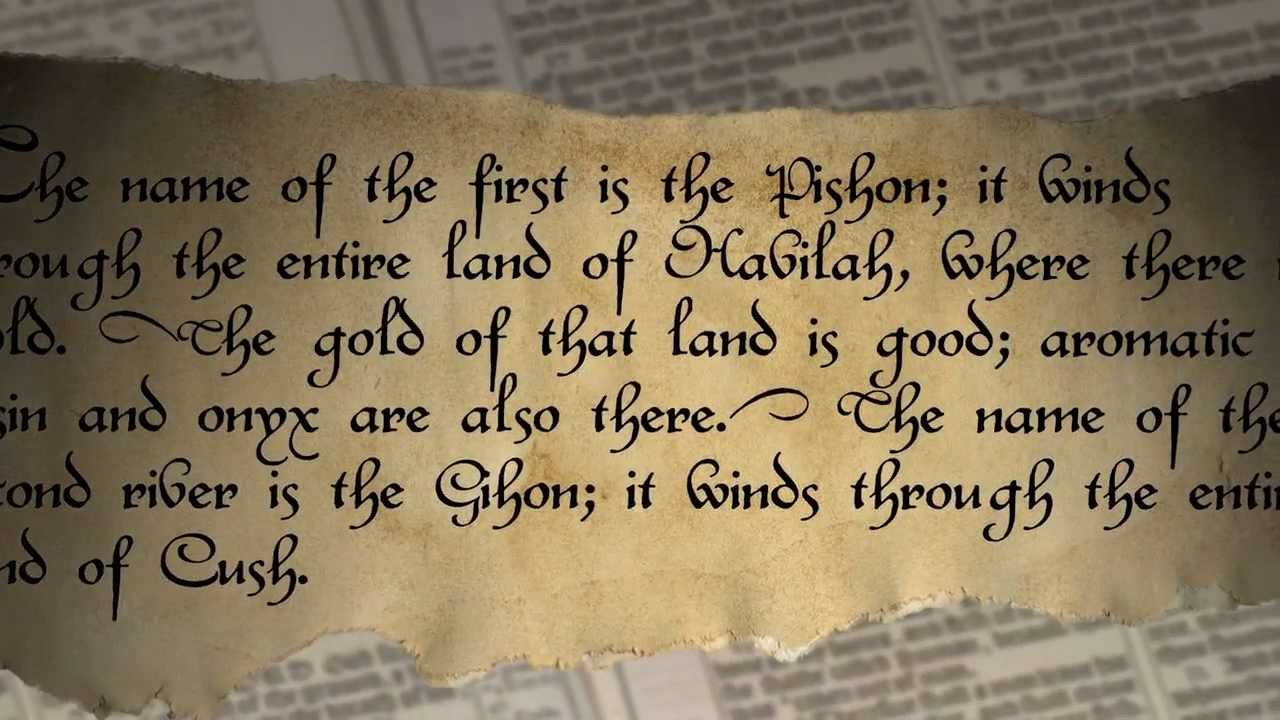 The name of the first is the Pishon; it winds
rough the entire land of Havilah, where there
old. The gold of that land is good; aromatic
sin and onyx are also there. The name of the
cond river is the Gihon; it winds through the entir
nd of Cush.